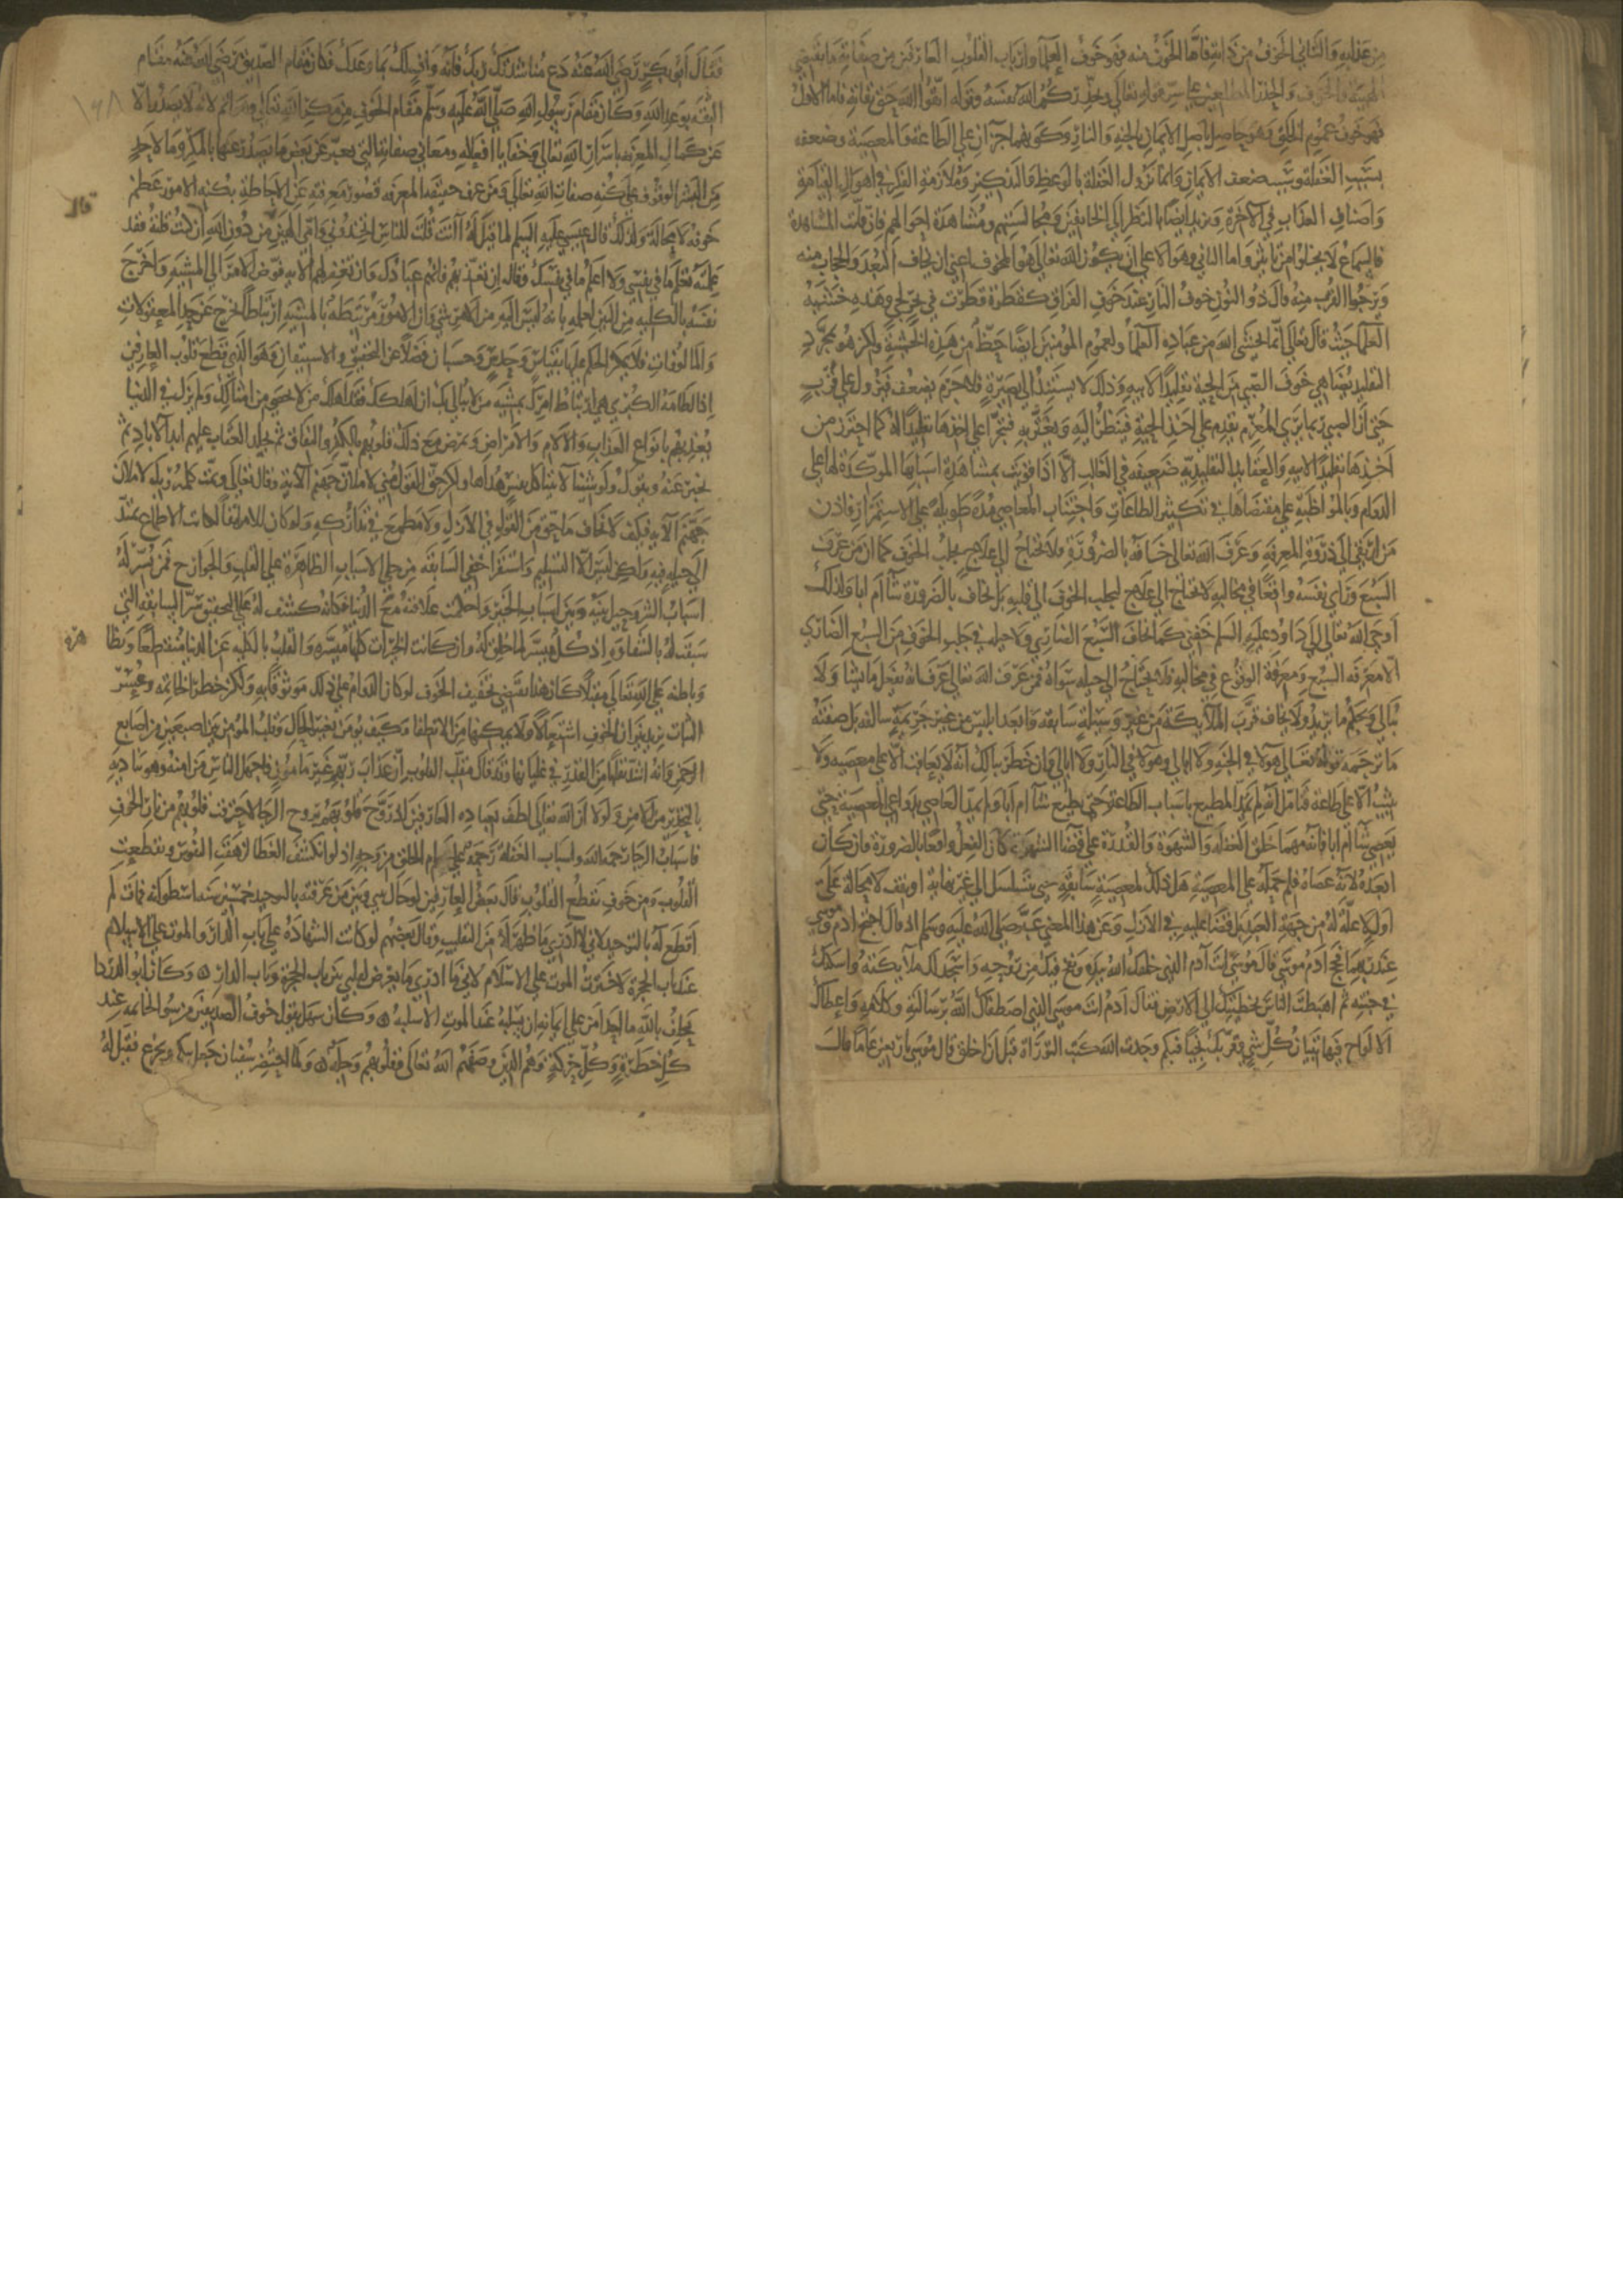 من عذابه والثاني الخوف من ذاته فاما الخوف منه فهو خوف العلماء وارباب القلوب العارفين من صفاته ما يقتضي
الهيبة والخوف والحذر المطلعين على سر قوله تعالى ويحذركم الله نفسه وقوله اتقوا الله حق تقاته فاما الاول
فهو خوف عموم الخلق وهو حاصل باصل الايمان بالجنة والنار وكونهما جزاءين على الطاعة والمعصية وضعفه
بسبب الغفلة وسبب ضعف الايمان وانما تزول الغفلة بالوعظ والتذكير وملازمة الفكر في اهوال القيامة
واصناف العذاب في الاخرة وتزيد ايضا بالنظر الى الخايفين ومجالستهم ومشاهدة احوالهم فان فاتت المشاهدة
فالسماع لا يخلوا من تاثير واما الثاني وهو الاعلى ان يكون الله تعالى هو المخوف اعني ان يخاف البعد والحجاب منه
ويرجوا القرب منه قال ذو النون خوف النار عند خوف الفراق كقطرة قطرت في بحر لجي وهذه خشية
العلما حيث قال تعالى انما يخشى الله من عباده العلما ولعموم المومنين ايضا حظ من هذه الخشية ولكن هو بمجرد
التقليد يضاهي خوف الصبي من الحية تقليدا لابيه وذلك لا يستند الى بصيرة فلا جرم يضعف ويزول على قرب
حتى ان الصبي ربما يرى المعزم يقدم على اخذ الحية فينظر اليه ويغتر به فيتجرا على اخذها تقليدا له كما احترز من
اخذها تقليدا لابيه والعقايد التقليدية ضعيفة في الغالب الا اذا قويت بمشاهدة اسبابها الموكدة لها على
الدوام وبالمواظبة على مقتضاها في تكثير الطاعات واجتناب المعاصي مدة طويلة على الاستمرار فاذن
من ارتقى الى ذروة المعرفة وعرف الله تعالى خافه بالضرورة فلا يحتاج الى علاج يجلب الخوف كما ان من عرف
السبع وراى نفسه واقعا في مخالبه لا يحتاج الى علاج لجلب الخوف الى قلبه بل يخاف بالضرورة شآ ام ابا ولذلك
اوحى الله تعالى الى داود عليه السلم خفني كما تخاف السبع الضاري ولا حيلة في جلب الخوف من السبع الضاري
الا معرفة السبع ومعرفة الوقوع في مخالبه فلا يحتاج الى حيلة سواه فمن عرف الله تعالى عرف انه يفعل ما يشا ولا
يبالي ويحكم ما يريد ولا يخاف قرب الملايكة من غير وسيلة سابقة وابعد ابليس من غير جريمة سالفة بل صفته
ما ترجمه قوله تعالى هولا في الجنة ولا ابالي وهولا في النار ولا ابالي وان خطر ببالك انه لا يعاقب الا على معصية ولا
يثيب الا على طاعة فتامل انه لم يمد المطيع باسباب الطاعة حتى يطيع شآ ام ابا ولم يمد العاصي بدواعي المعصية حتى
يعصي شآ ام ابا فانه مهما خلق الغفلة والشهوة والقدرة على قضآ الشهوة كان الفعل واقعا بالضرورة فان كان
ابعده لانه عصاه فلم حمله على المعصية هل ذلك لمعصية سابقة حتى يتسلسل الى غير نهاية او يقف لا محالة على
اول لا علة له من جهة العبد بل قضا عليه في الازل وعن هذا المعنى عبر صلى الله عليه وسلم اذ قال احتج ادم وموسى
عند ربهما فحج ادم موسى قال موسى انت آدم الذي خلقك الله بيده ونفخ فيك من روحه واسجد لك ملايكته واسكنك
في جنته ثم اهبطت الناس بخطيتك الى الارض فقال ادم انت موسى الذي اصطفاك الله برسالته وكلامه واعطاك
الالواح فيها تبيان كل شي وقربك نجيا فبكم وجدت الله كتب التوراة قبل ان اخلق قال موسى باربعين عاما قال
فقال ابو بكر رضي الله عنه دع مناشدتك ربك فانه واف لك بما وعدك فكان مقام الصديق رضي الله عنه مقام
١٦٨
الثقة بوعد الله وكان مقام رسول الله صلى الله عليه وسلم مقام الخوف من مكر الله تعالى وهو اتم لانه لا يصدر الا
عن كمال المعرفة باسرار الله تعالى وخفايا افعاله ومعاني صفاته التي يعبر عن بعض ما يصدر عنها بالمكر وما لاحد
من البشر الوقوف على كنه صفات الله تعالى ومن عرف حقيقة المعرفة قصور معرفته عن الاحاطة بكنه الامور عظم
قال
خوفه لا محالة ولذلك قال عيسى عليه السلم لما قيل له اانت قلت للناس اتخذوني وامي الهين من دون الله ان كنت قلته فقد
علمته تعلم ما في نفسي ولا اعلم ما في نفسك وقال ان تعذبهم فانهم عبادك وان تغفر لهم الاية فوض الامر الى المشية واخرج
نفسه بالكلية من البين لعلمه بانه ليس اليه من الامر شي وان الامور مرتبطة بالمشية ارتباطا يخرج عن حد المعقولات
والمالوفات فلا يمكن الحكم عليها بقياس وحدس وحسبان فضلا عن التحقيق والاستيقان وهو الذي قطع قلوب العارفين
اذ الطامة الكبرى هي ارتباط امرك بمشية من لا يبالي بك ان اهلكك فقد اهلك من لا يحصى من امثالك ولم يزل في الدنيا
يعذبهم بانواع العذاب والآلام والامراض ويمرض مع ذلك قلوبهم بالكفر والنفاق ثم يخلد العقاب عليهم ابد الاباد ثم
يخبر عنه ويقول ولو شينا لاتينا كل نفس هداها ولكن حق القول مني لاملان جهنم الآية وقال تعالى وتمت كلمة ربك لاملان
جهنم الآية فكيف لا تخاف ما حق من القول في الازل ولا مطمع في تداركه ولو كان الامر انفا لكانت الاطماع تمتد
الى حيلة فيه ولكن ليس الا التسليم واستقرا خفي السابقة من جلي الاسباب الظاهرة على القلب والجوارح فمن يسرت له
اسباب الشر وحيل بينه وبين اسباب الخير واحكمت علاقته مع الدنيا فكانه كشف له على التحقيق سر السابقة التي
سبقت له بالشقاوة اذ كل ميسر لما خلق له وان كانت الخيرات كلها ميسرة والقلب بالكلية عن الدنيا منقطعا وبظا
هره
وباطنه على الله تعالى مقبلا كان هذا يقتضي تخفيف الخوف لو كان الدوام على ذلك موثوقا به ولكن خطر الخاتمة وعسر
الثبات يزيد نيران الخوف اشتعالا ولا يمكنها من الانطفا وكيف يومن تغير الحال وقلب المومن بين اصبعين من اصابع
الرحمن وانه اشد تقلبا من القدر في غليانها وقد قال مقلب القلوب ان عذاب ربهم غير مامون فاجهل الناس من امنه وهو ينادي
بالتحذير من الامن ولولا ان الله تعالى لطف بعباده العارفين اذ روح قلوبهم بروح الرجا لاحترقت قلوبهم من نار الخوف
فاسباب الرجا رحمة الله واسباب الغفلة رحمة على عوام الخلق من وجه اذ لو انكشف الغطا لزهقت النفوس وتقطعت
القلوب ومن خوف تقطع القلوب قال بعض العارفين لو حال بيني وبين من عرفته بالتوحيد خمسين سنة اسطوانة فمات لم
اقطع له بالتوحيد لاني لا ادري ما ظهر له من التقليب وقال بعضهم لو كانت الشهادة على باب الدار والموت على الاسلام
عند باب الحجرة لاخترت الموت على الاسلام لاني ما ادري ما يعرض لقلبي بين باب الحجرة وباب الدار ه وكان ابو الدردا
يحلف بالله ما احد امن على ايمانه ان يسلبه عند الموت الا سلبه ه وكان سهل يقول خوف الصديقين من سو الخاتمة عند
كل خطرة وكل حركة وهم الذين وصفهم الله تعالى فقلوبهم وجلة ه ولما احتضر سفيان جعل يبكي ويجزع فقيل له